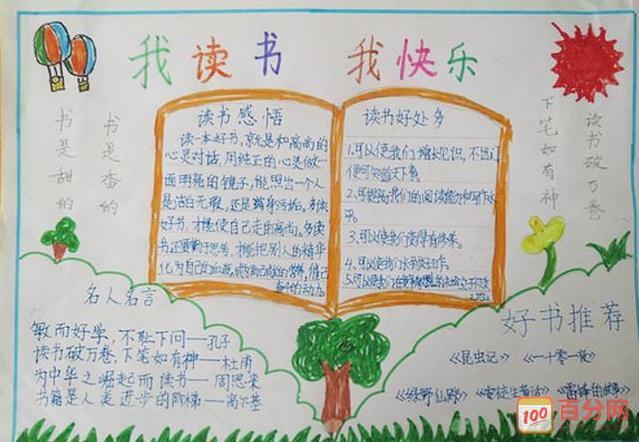 我读书 我快乐
书是香的
书是甜的
读书破万卷
下笔如有神
读书感悟
读一本好书，就是和高尚的
心灵对话，用纯正的心灵做一
面明亮的镜子，能照出一个人
是洁白无瑕，还是满身污垢。多读
好书，才能使自己走向高尚。多读
书还要勤于思考，才能把别人的精华
化为自己的血液，成为自己成长的营养，
的动力。
读书好处多
1.可以使我们增长见识，不出门
便可知道天下事。
2.可提高我们的阅读能力和写作水
平。
3.可以使我们变得有修养。
4.可以使我们
5.可以使我们
名人名言
敏而好学，不耻下问——孔子
读书破万卷，下笔如有神——杜甫
为中华之崛起而读书——周恩来
书籍是人类进步的阶梯——高尔基
好书推荐
《昆虫记》 《一千零一夜》
《绿野仙踪》 《安徒生童话》 《雷锋的故事》
100 百分网